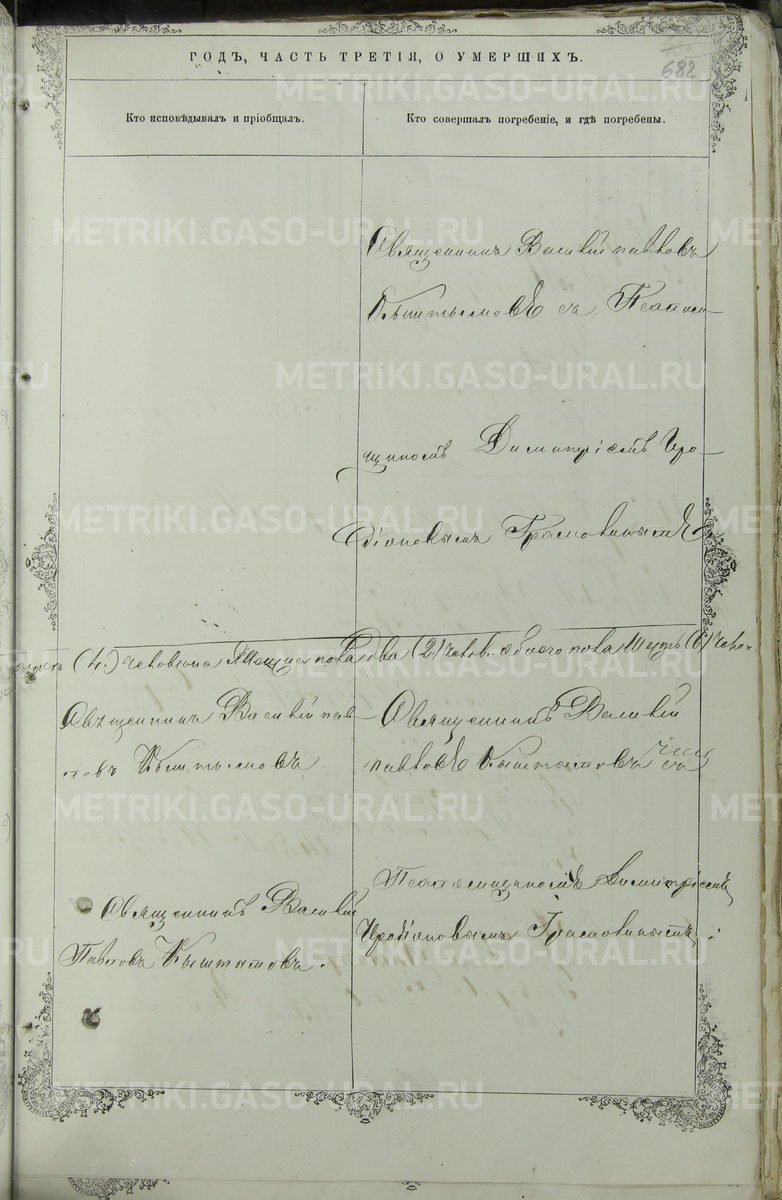 682
ГОДЪ, ЧАСТЬ ТРЕТІЯ, О УМЕРШИХЪ.
Кто исповѣдывалъ и пріобщалъ.
Кто совершалъ погребеніе, и гдѣ погребены.
METRIKI.GASO-URAL.RU
Священникъ Василій Павловъ
Кыштымовъ съ Псаломъ–
щикомъ Димитріемъ Иро–
діоновымъ Грамолинымъ
(4.) человека Женска пола два (2) челов. обоего пола Шесть (6) чело–
Священникъ Василій Пав–
ловъ Кыштымовъ.
Священникъ Василій
Павловъ Кыштымовъ съ
Священникъ Василій
Павловъ Кыштымовъ.
Псаломщикомъ Димитріемъ
Иродіоновымъ